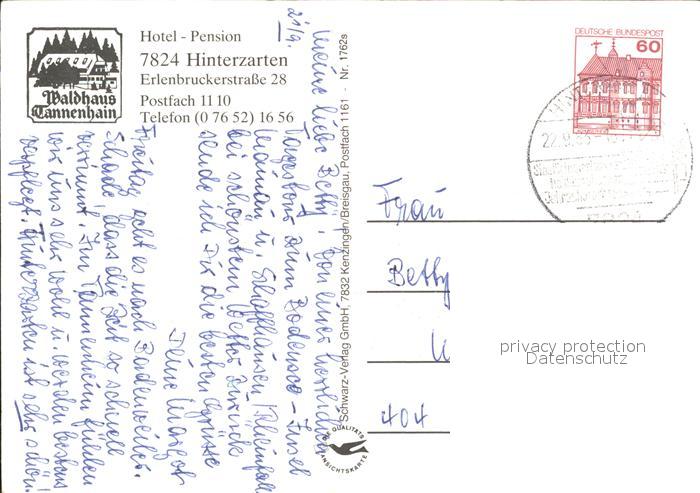 Waldhaus
Tannenhain
Hotel - Pension
7824 Hinterzarten
Erlenbruckerstraße 28
Postfach 11 10
Telefon (0 76 52) 16 56
21/9.
Meine liebe Betty! Von einer herrlichen
Tagestour zum Bodensee - Insel
Mainau u. Schaffhausen Rheinfall
bei schönstem Wetter zurück
sende ich Dir die besten Grüsse
Deine Margot
Freitag geht es nach Badenweiler.
Schade, dass die Zeit so schnell
verrinnt. Im Tannenhain fühlen
wir uns sehr wohl u. werden bestens
verpflegt. Hinterzarten ist sehr schön!
Schwarz-Verlag GmbH, 7832 Kenzingen/Breisgau, Postfach 1161 · Nr. 1762s
DIE QUALITÄTS
ANSICHTSKARTE
DEUTSCHE BUNDESPOST
60
22.9.
7824
Frau
Betty
404
privacy protection
Datenschutz